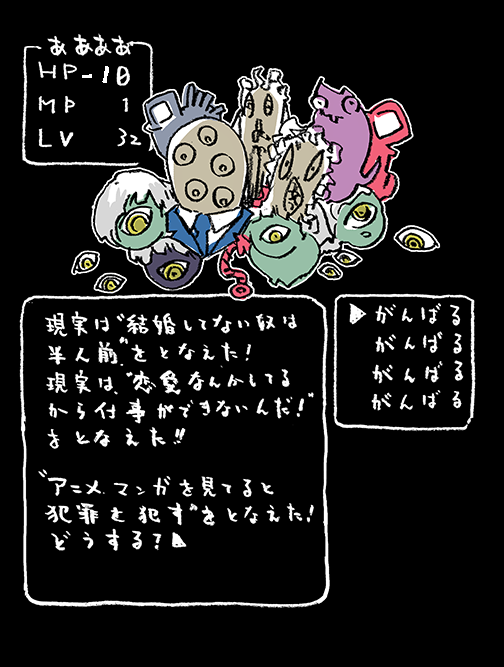 ああああ
HP -10
MP 1
LV 32
現実は"結婚してない奴は
半人前"をとなえた!
現実は、"恋愛なんかしてる
から仕事ができないんだ!"
をとなえた!!
"アニメ、マンガを見てると
犯罪を犯す"をとなえた!
どうする?
▶がんばる
がんばる
がんばる
がんばる